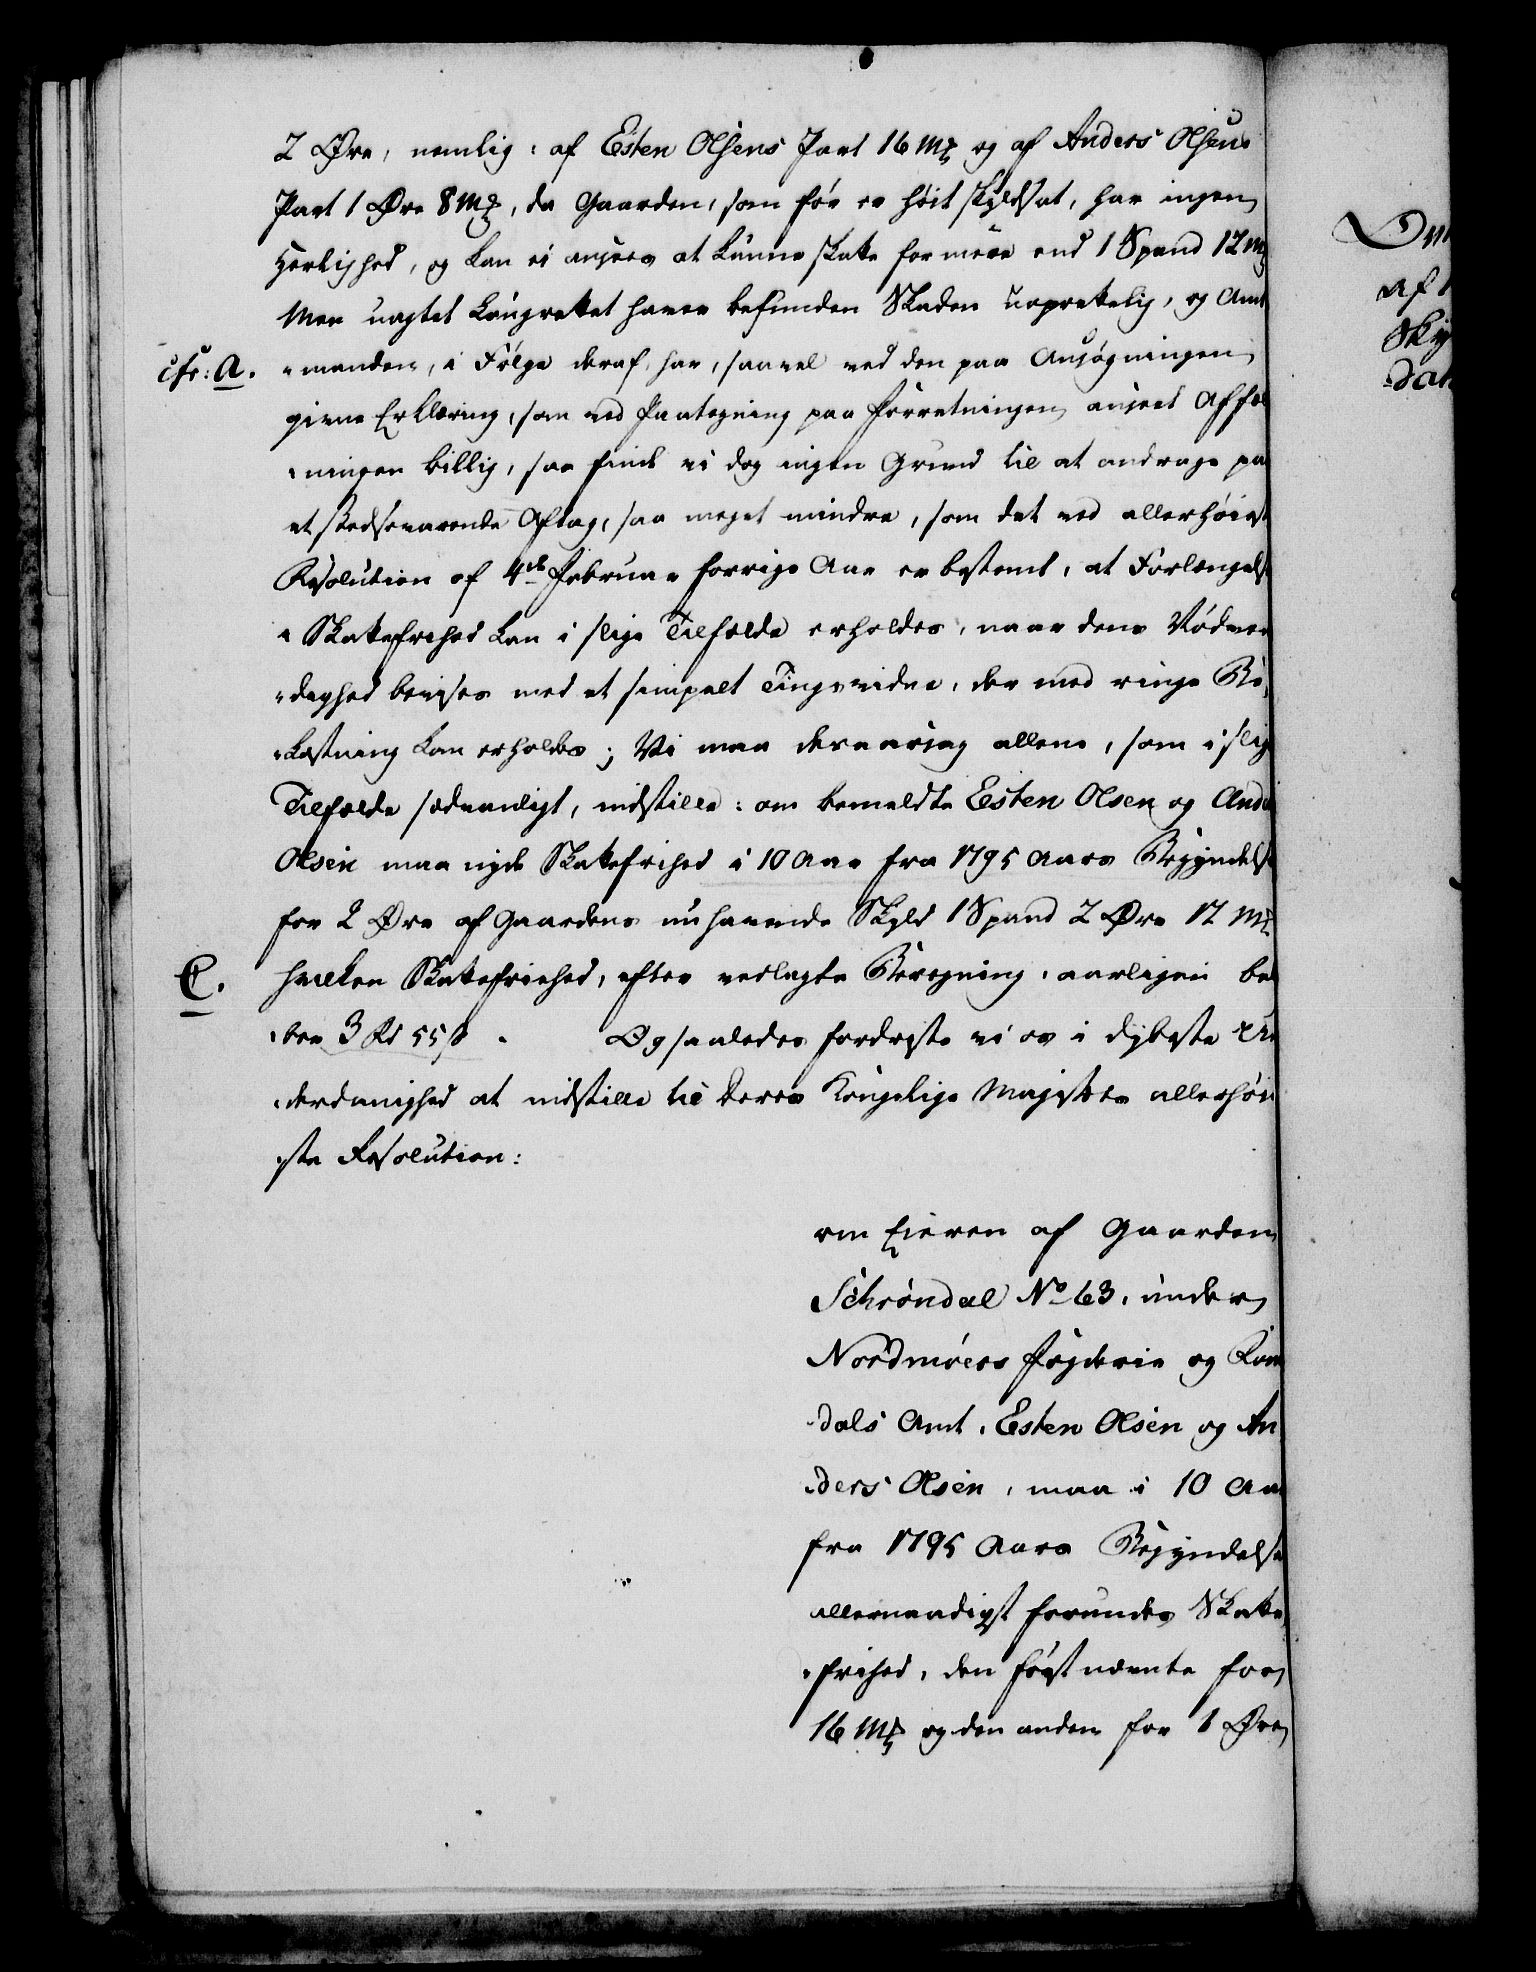 2 Øre, nemlig: af Esten Olsens Part 16 Mk og af Anders Olsens
Part 1 Øre 8 Mk, da Gaarden, som før er høit skyldsat, har ingen
Herlighed, og kan ei ansees at kunne skatte for meere end 1 Spand 12 Mk
Men uagtet Laugrettet haver befunden Skaden uoprettelig, og Amt
cfr: A. -manden, i Følge deraf, har, saavel ved den paa Ansøgningen
givne Erklæring, som ved Paategning paa Forretningen anseet Affæl
-ningen billig, saa finde vi dog ingen Grund til at andrage paa
et stedsevarende Aftag, saa meget mindre, som det ved allerhøieste
Resolution af 4de Februar forrige Aar er bestemt, at Forlængelse
i Skattefrihed kan i slige Tilfælde erholdes, naar dens Nødven
-dighed bevises med et simpelt Tingsvidne, der med ringe Be
-kostning kan erholdes; Vi maa deraarsag allene, som i slige
Tilfælde sædvanligt, indstille: om bemeldte Esten Olsen og Anders
Olsen maa nyde Skattefrihed i 10 Aar fra 1795 Aars Begyndelse
for 2 Øre af Gaardens nuhavende Skyld 1 Spand 2 Øre 12 Mk
C. hvilken Skattefriehed, efter vedlagte Beregning, aarligen belø
-ber 3 Rd 55 ß. Og saaledes fordriste vi os i dybeste Un
-derdanighed at indstille til Deres Kongelige Majestets allerhøie
-ste Resolution:
om Eieren af Gaarden
Schrøndal No 63, under
Nordmøers Fogderie og Roms
-dals Amt, Esten Olsen og An
-ders Olsen, maa i 10 Aar
fra 1795 Aars Begyndelse
allernaadigst forundes Skatte
-frihed, den først nævnte for
16 Mk og den anden for 1 Øre